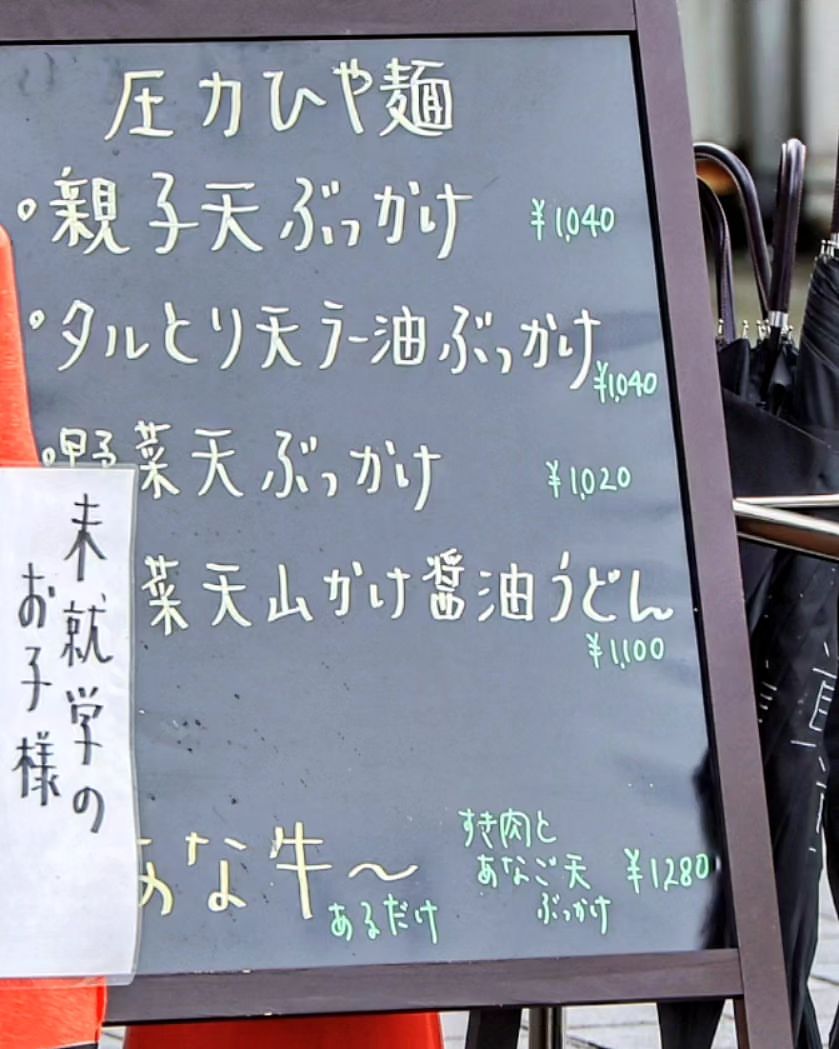 圧力ひや麺
・親子天ぶっかけ ¥1,040
・タルとり天ラー油ぶっかけ
¥1,040
・野菜天ぶっかけ ¥1,020
菜天山かけ醤油うどん
¥1,100
未就学の
お子様
あな牛〜
あるだけ
すき肉と
あなご天
ぶっかけ
¥1280